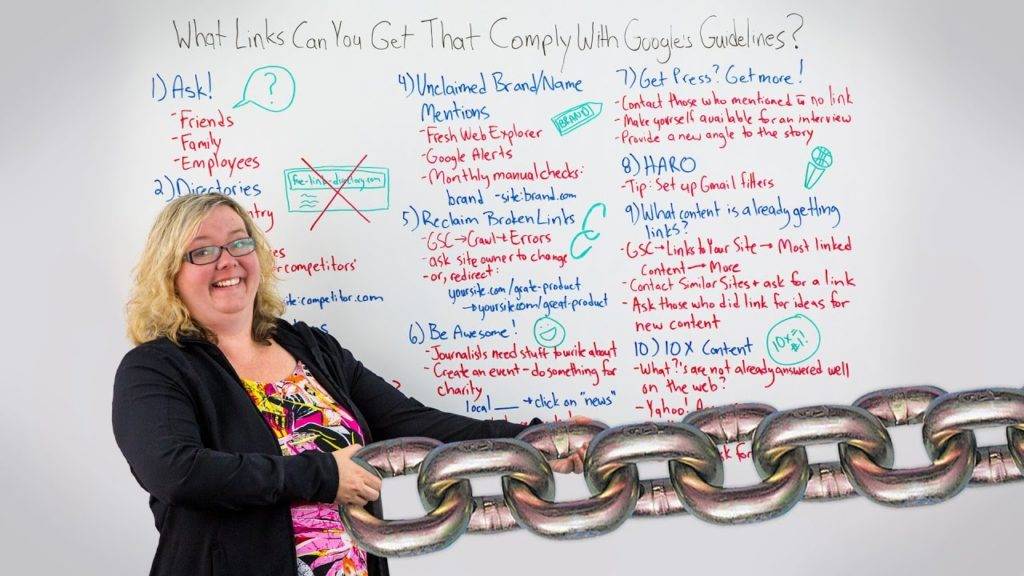 What Links Can You Get That Comply With Google's Guidelines?
1) Ask!
?
- Friends
- Family
- Employees
2) Directories
free-link-directory.com
competitors'
site:competitor.com
4) Unclaimed Brand/Name
Mentions
BRAND
- Fresh Web Explorer
- Google Alerts
- Monthly manual checks:
brand -site:brand.com
5) Reclaim Broken Links
- GSC → Crawl → Errors
- ask site owner to change
- or, redirect:
yoursite.com/grate-product
→ yoursite.com/great-product
6) Be Awesome!
- Journalists need stuff to write about
- Create an event - do something for
charity
local ___ → click on "news"
7) Get Press? Get more!
- Contact those who mentioned w no link
- Make yourself available for an interview
- Provide a new angle to the story
8) HARO
- Tip: Set up Gmail filters
9) What content is already getting
links?
- GSC → Links to Your Site → Most linked
Content → More
- Contact Similar Sites + ask for a link
- Ask those who did link for ideas for
new content
10) 10X Content
10x
- What ?'s are not already answered well
on the web?
- Yahoo!